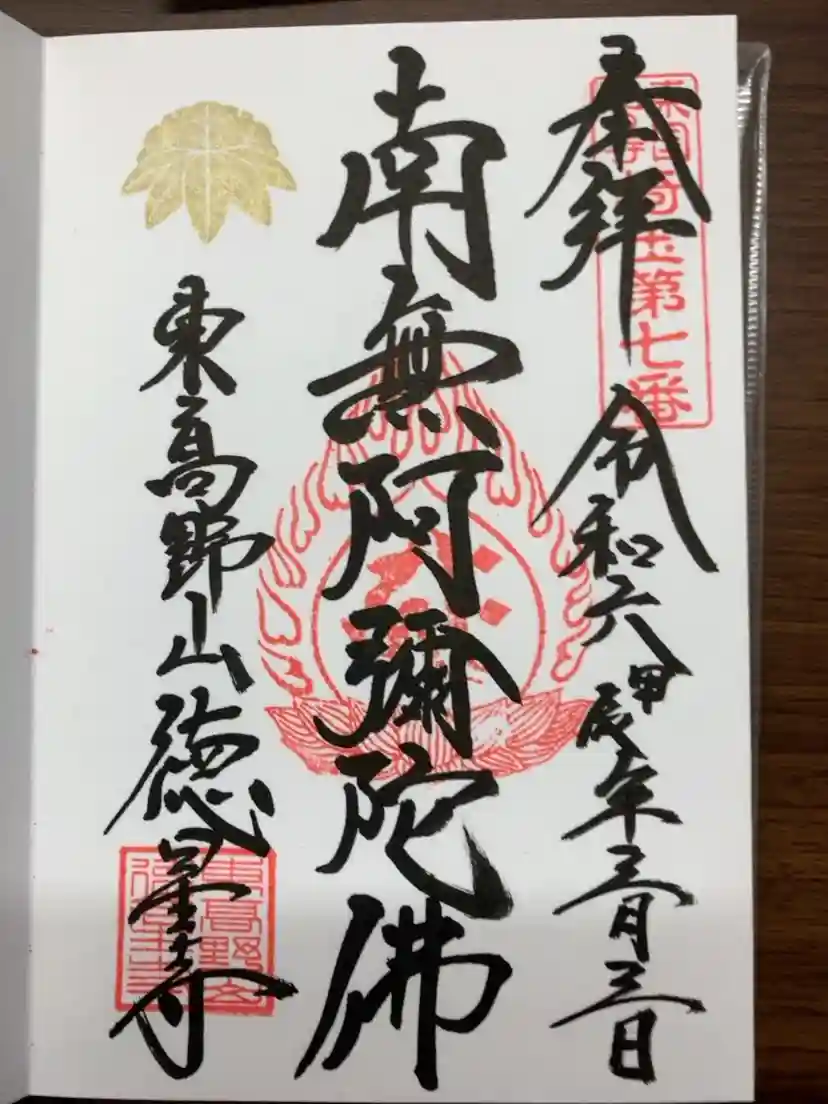 奉拝
令和六甲辰年三月三日
埼玉第七番
南無阿彌陀佛
東高野山
徳星寺